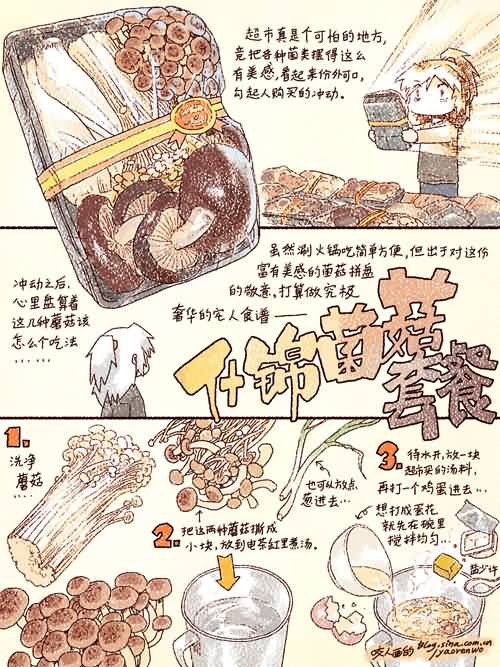 超市真是个可怕的地方,
竟把各种菌类摆得这么
有美感,看起来份外可口,
勾起人购买的冲动。
冲动之后,
心里盘算着
这几种蘑菇该
怎么个吃法
……
虽然涮火锅吃简单方便,但出于对这份
富有美感的菌菇拼盘
的敬意,打算做究极
奢华的宅人食谱——
什锦菌菇
套餐
1.
洗净
蘑菇
…
2.
把这两种蘑菇撕成
小块,放到电茶缸里煮汤。
也可以放点
葱进去…
3.
待水开,放一块
超市买的汤料,
再打一个鸡蛋进去…
想打成蛋花
就先在碗里
搅拌均匀…
盐少许
咬人画的
blog.sina.com.cn
/yaorenwo